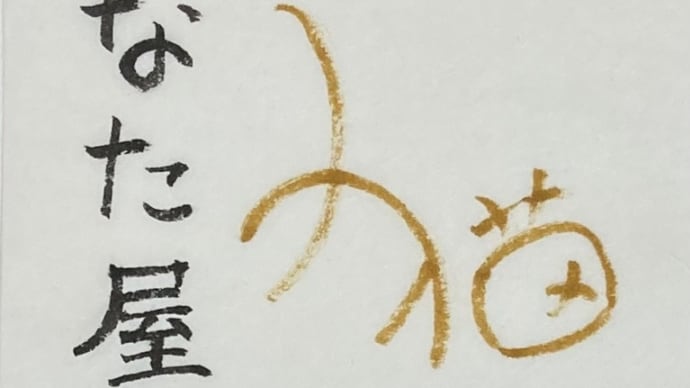 猫
なた屋